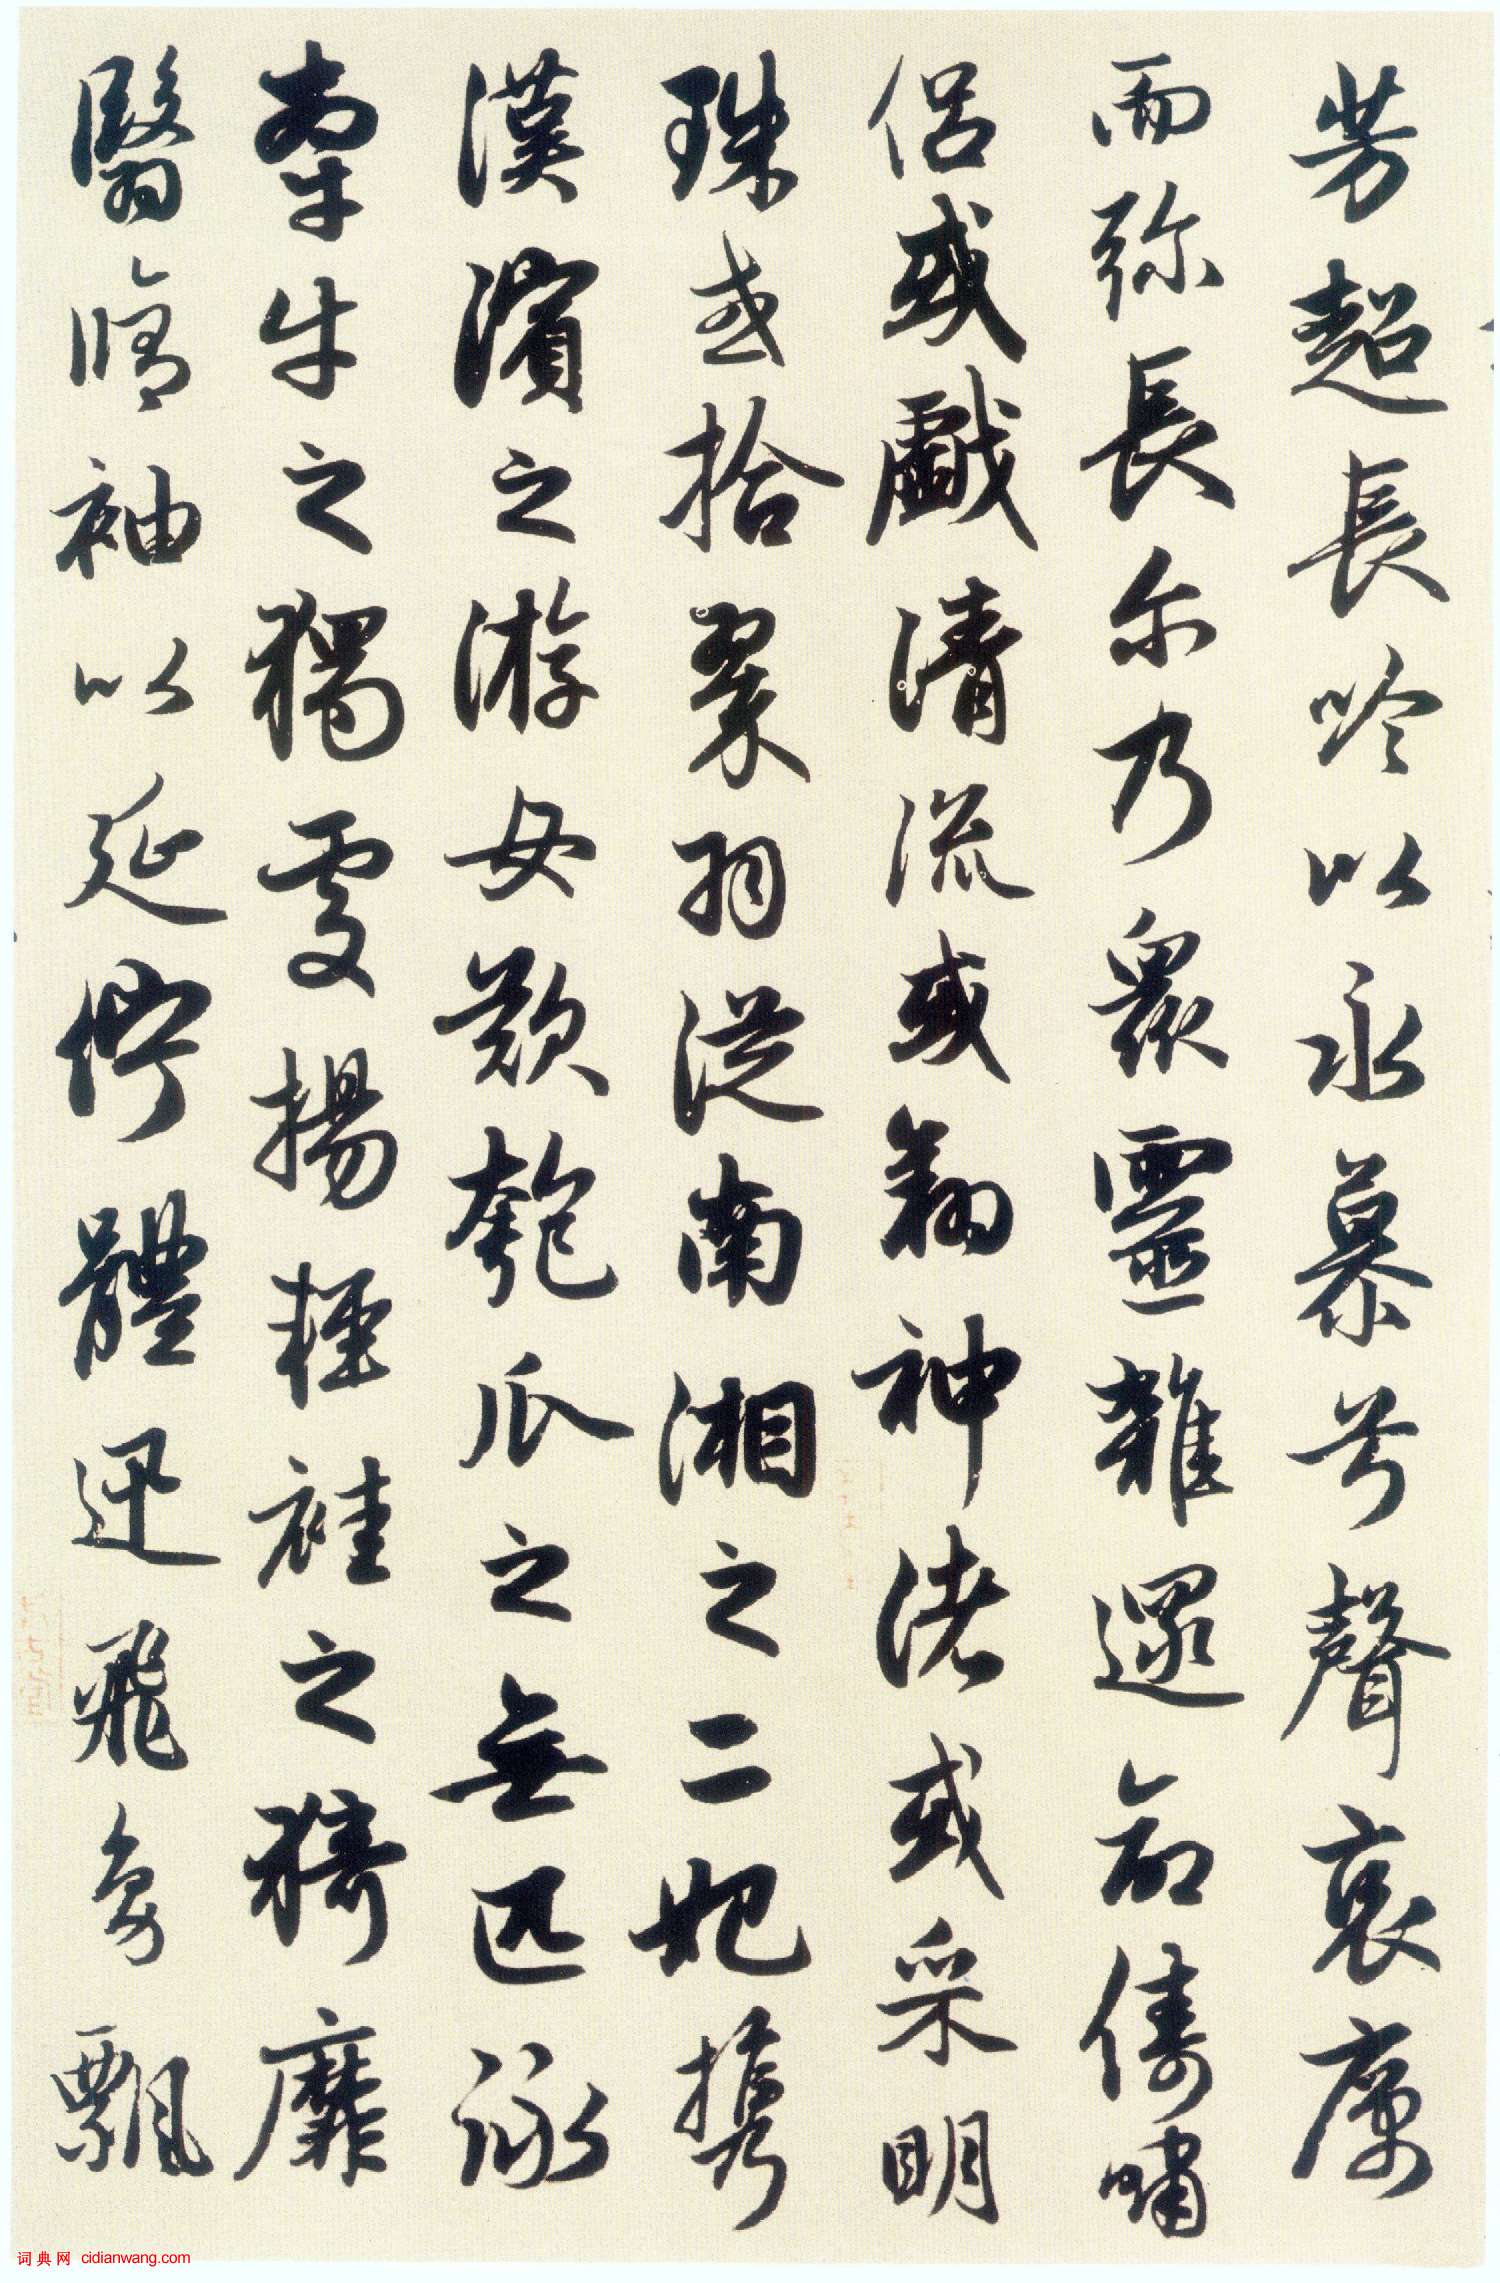 芳超長吟以永慕兮聲哀厲
而弥長尔乃眾靈雜遝命儔嘯
侣或戲清流或翔神渚或采明
珠或拾翠羽從南湘之二妃攜
漢濱之游女歎匏瓜之無匹詠
牽牛之獨處揚輕袿之猗靡
翳脩袖以延佇體迅飛鳧飄
词典网 cidianwang.com